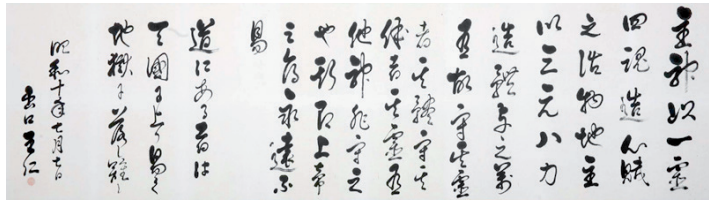 主神以一霊
四魂造心賦
之活物地主
以三元八力
造體与之萬
有故守其霊
者其體守其
體者其霊有
他神非守之
也斯即上帝
之命永遠不
易
道にある者は
天國に上り易く
地獄に落
昭和十年七月七日
出口王仁